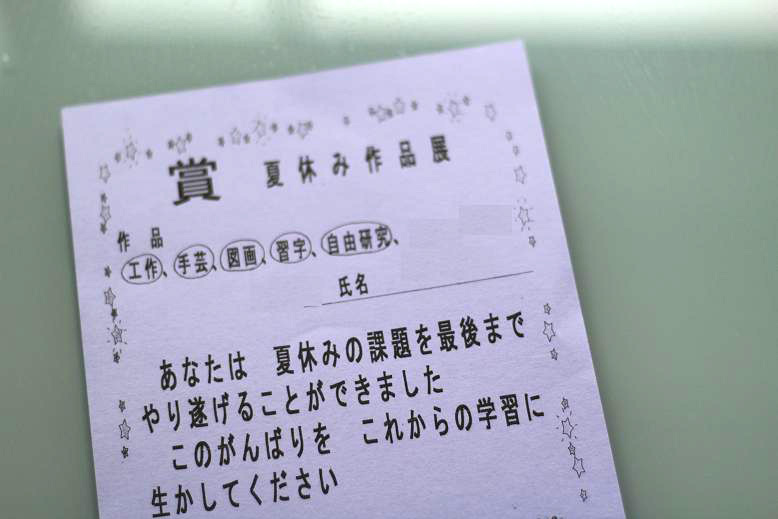 賞 夏休み作品展
作品
工作、手芸、図画、習字、自由研究、
氏名
あなたは 夏休みの課題を最後まで
やり遂げることができました
このがんばりを これからの学習に
生かしてください